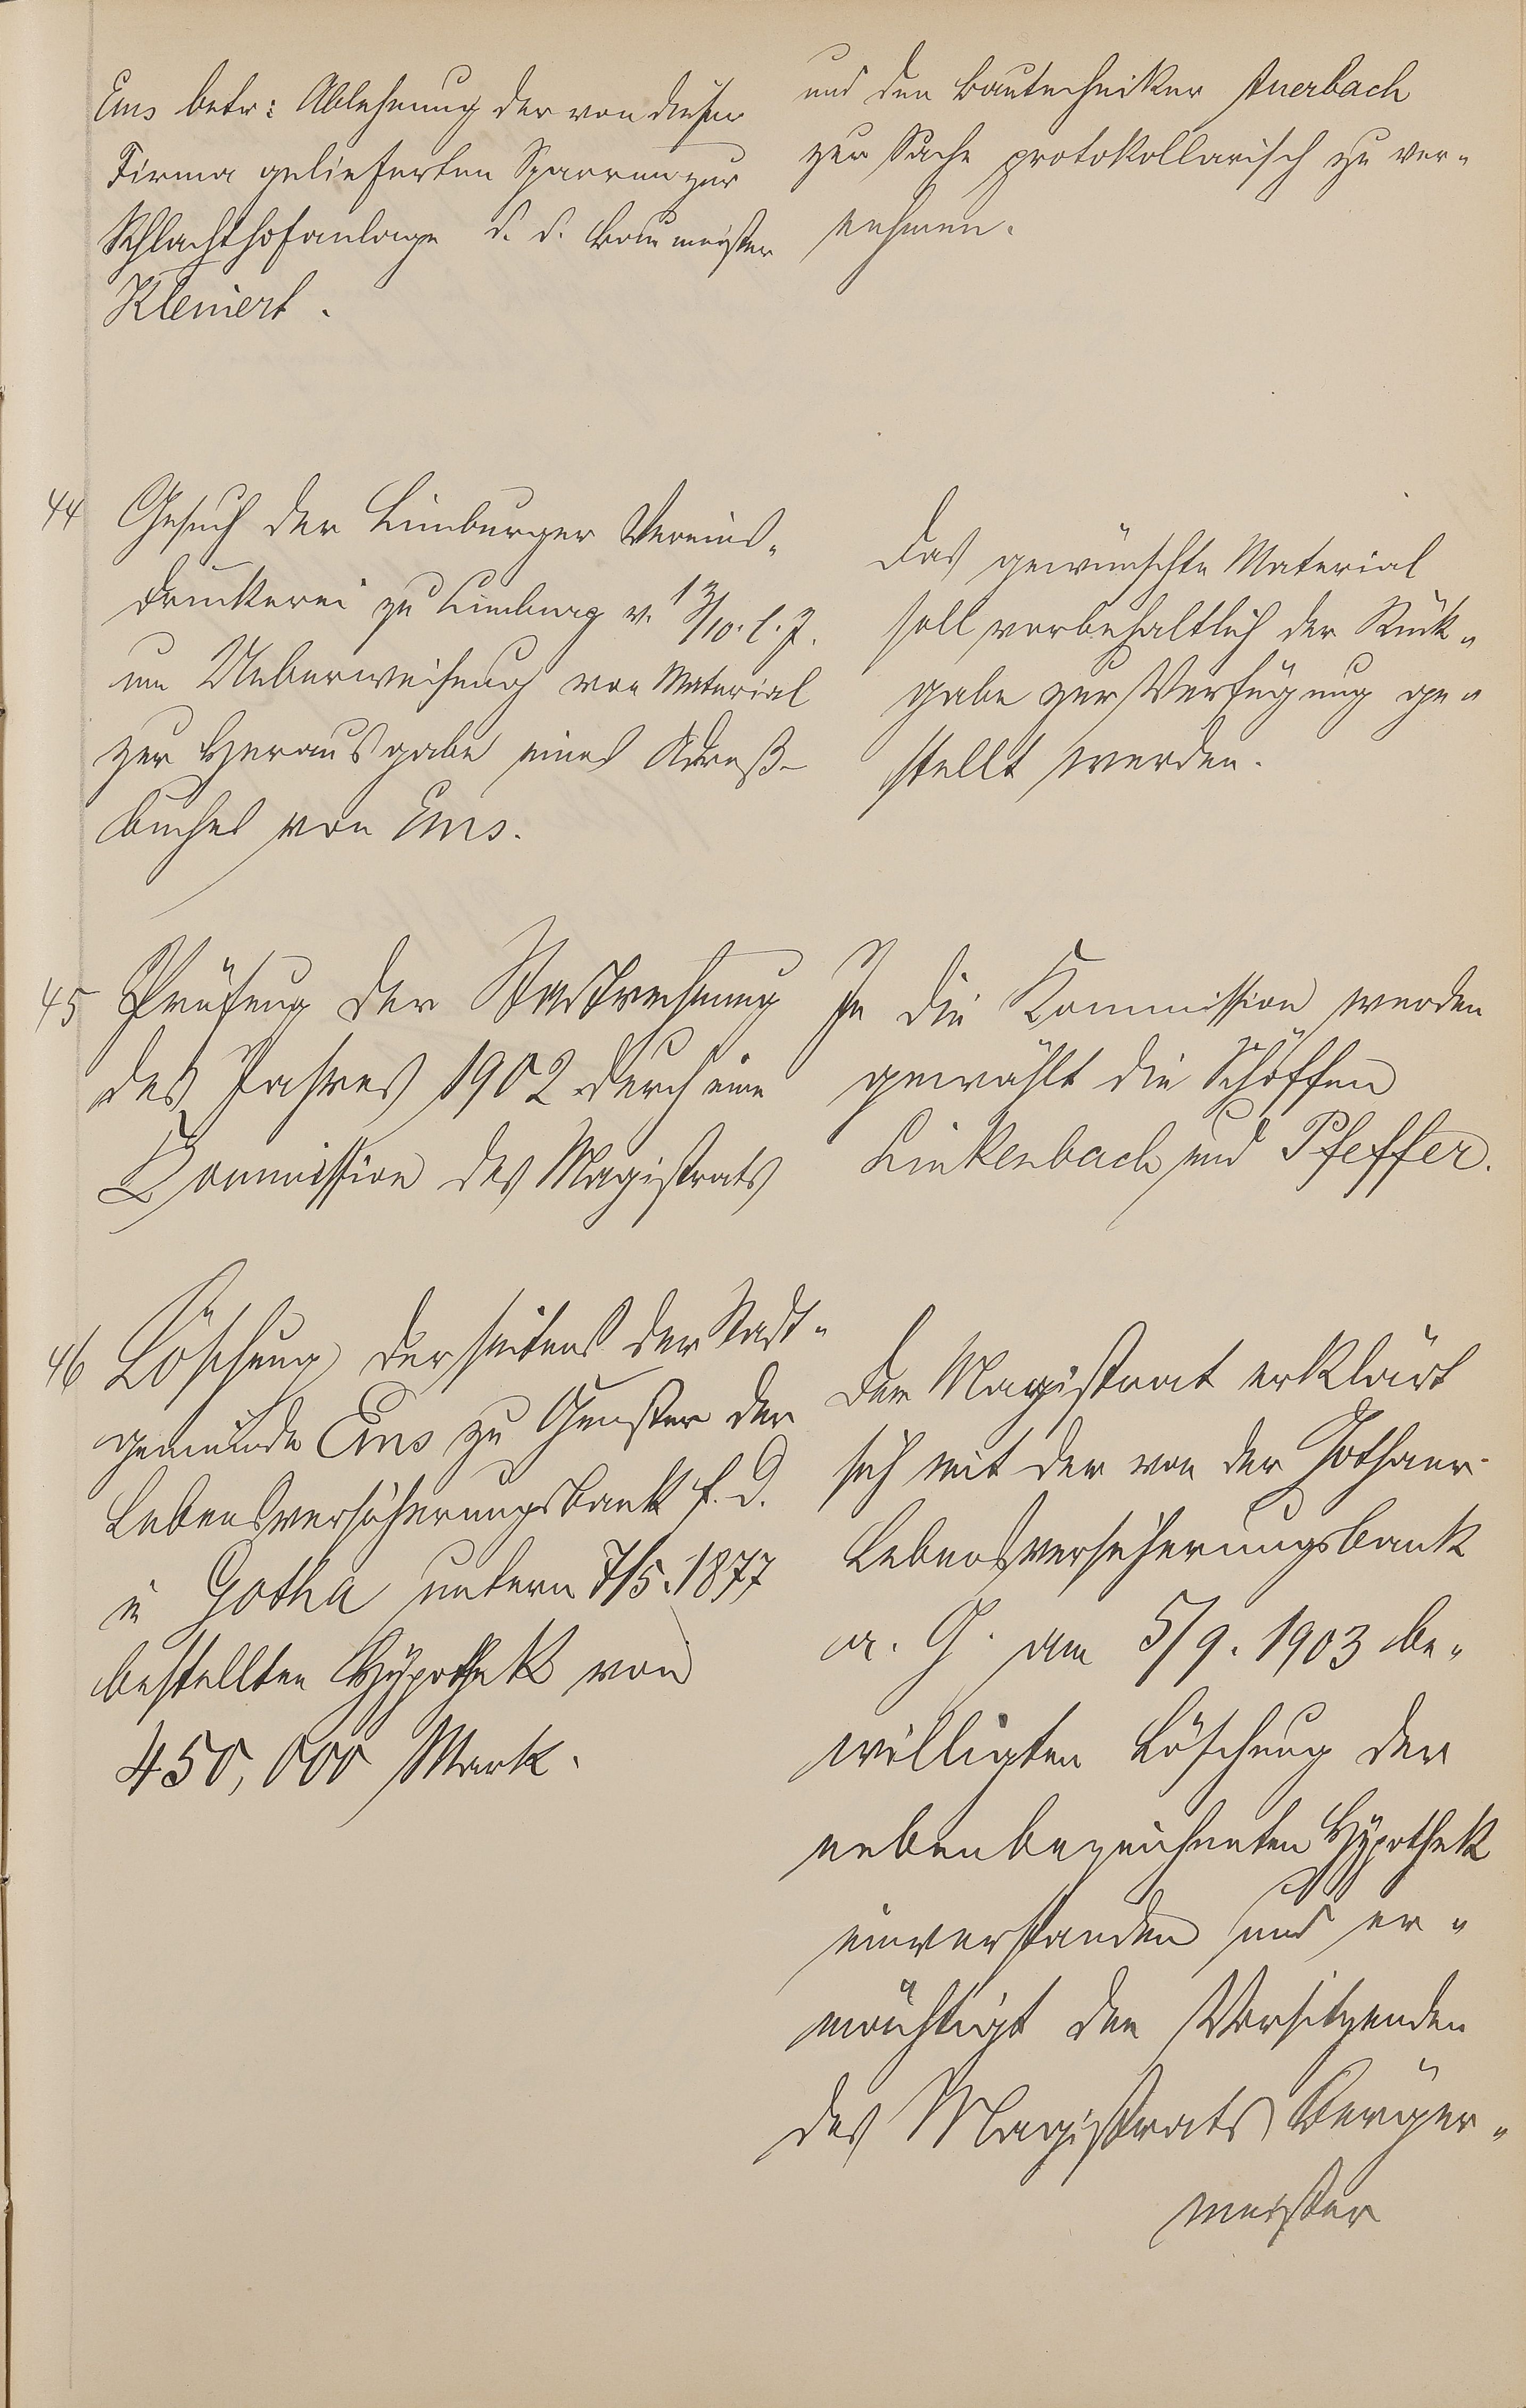 Ems betr: Ablehnung der von dieser
Firma gelieferten Sparren zur
Schlachthofanlage d. d. Baumeister
Kleinert.
und den Bautechniker Auerbach
zur Sache protokollarisch zu ver-
nehmen.
44 Gesuch der Limburger Vereins-
druckerei zu Limburg v. 13/10. l. J.
um Ueberweisung von Material
zur Herausgabe eines Adreß-
buches von Ems.
Das gewünschte Material
soll vorbehaltlich der Rück-
gabe zur Verfügung ge-
stellt werden.
45 Prüfung der Stadtrechnung
des Jahres 1902 durch eine
Kommission des Magistrats
In die Kommission werden
gewählt die Schöffen
Linkenbach und Pfeffer.
46 Löschung der seitens der Stadt-
gemeinde Ems zu Gunsten der
Lebensversicherungsbank f. D.
in Gotha unterm 7/5. 1877
bestellten Hypothek von
450,000 Mark.
Der Magistrat erklärt
sich mit der von der Gothaer
Lebensversicherungsbank
a. G. am 5/9. 1903 be-
willigten Löschung der
nebenbezeichneten Hypothek
einverstanden und er-
mächtigt den Vorsitzenden
des Magistrats Bürger-
meister